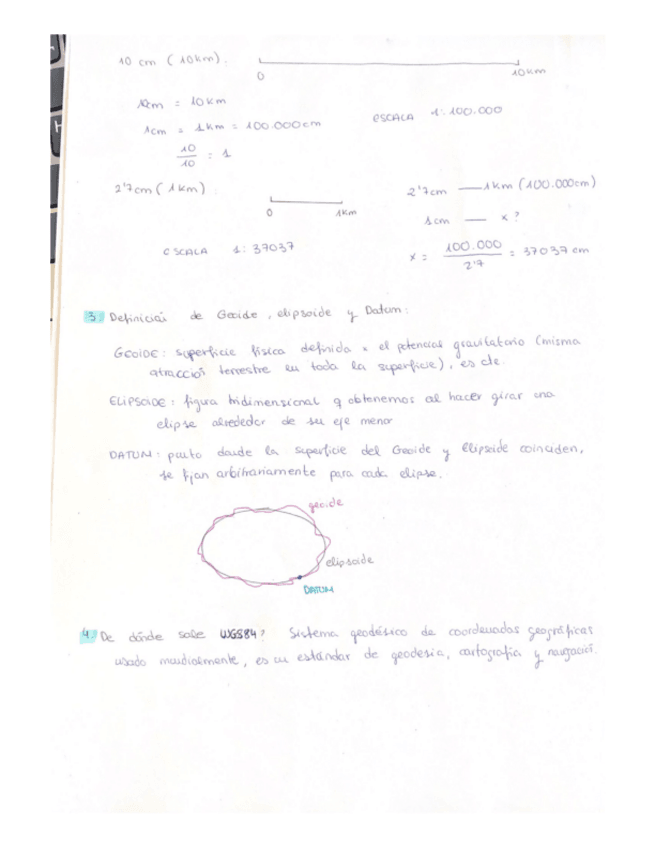 10 cm (10km).
0 10 km
10cm = 10km
1cm = 1km = 100.000cm
ESCALA 1:100.000
10/10 = 1
2'7cm (1km)
0 1km
ESCALA 1:37037
2'7cm — 1km (100.000cm)
1cm — x?
x = 100.000/2'7 = 37037 cm
3. Definición de Geoide, elipsoide y Datum:
GEOIDE: superficie física definida x el potencial gravitatorio (misma
atracción terrestre en toda la superficie), es cte.
ELIPSOIDE: figura tridimensional q obtenemos al hacer girar una
elipse alrededor de su eje menor
DATUM: punto donde la superficie del Geoide y Elipsoide coinciden,
se fijan arbitrariamente para cada elipse.
geoide
elipsoide
DATUM
4. De dónde sale WGS84? Sistema geodésico de coordenadas geográficas
usado mundialmente, es un estándar de geodesia, cartografía y navegación.